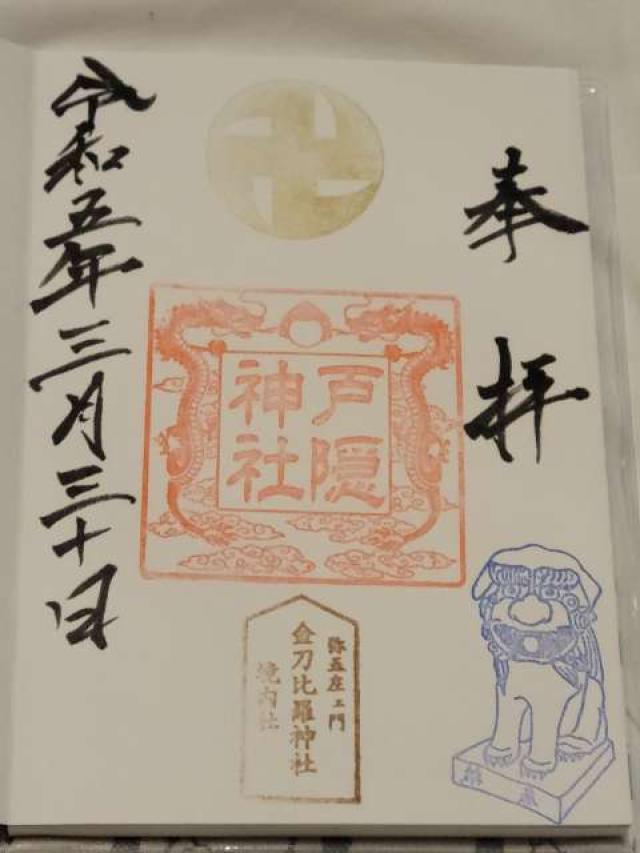 奉拝
戸隠
神社
弥五左ェ門
金刀比羅神社
境内社
令和五年三月三十日